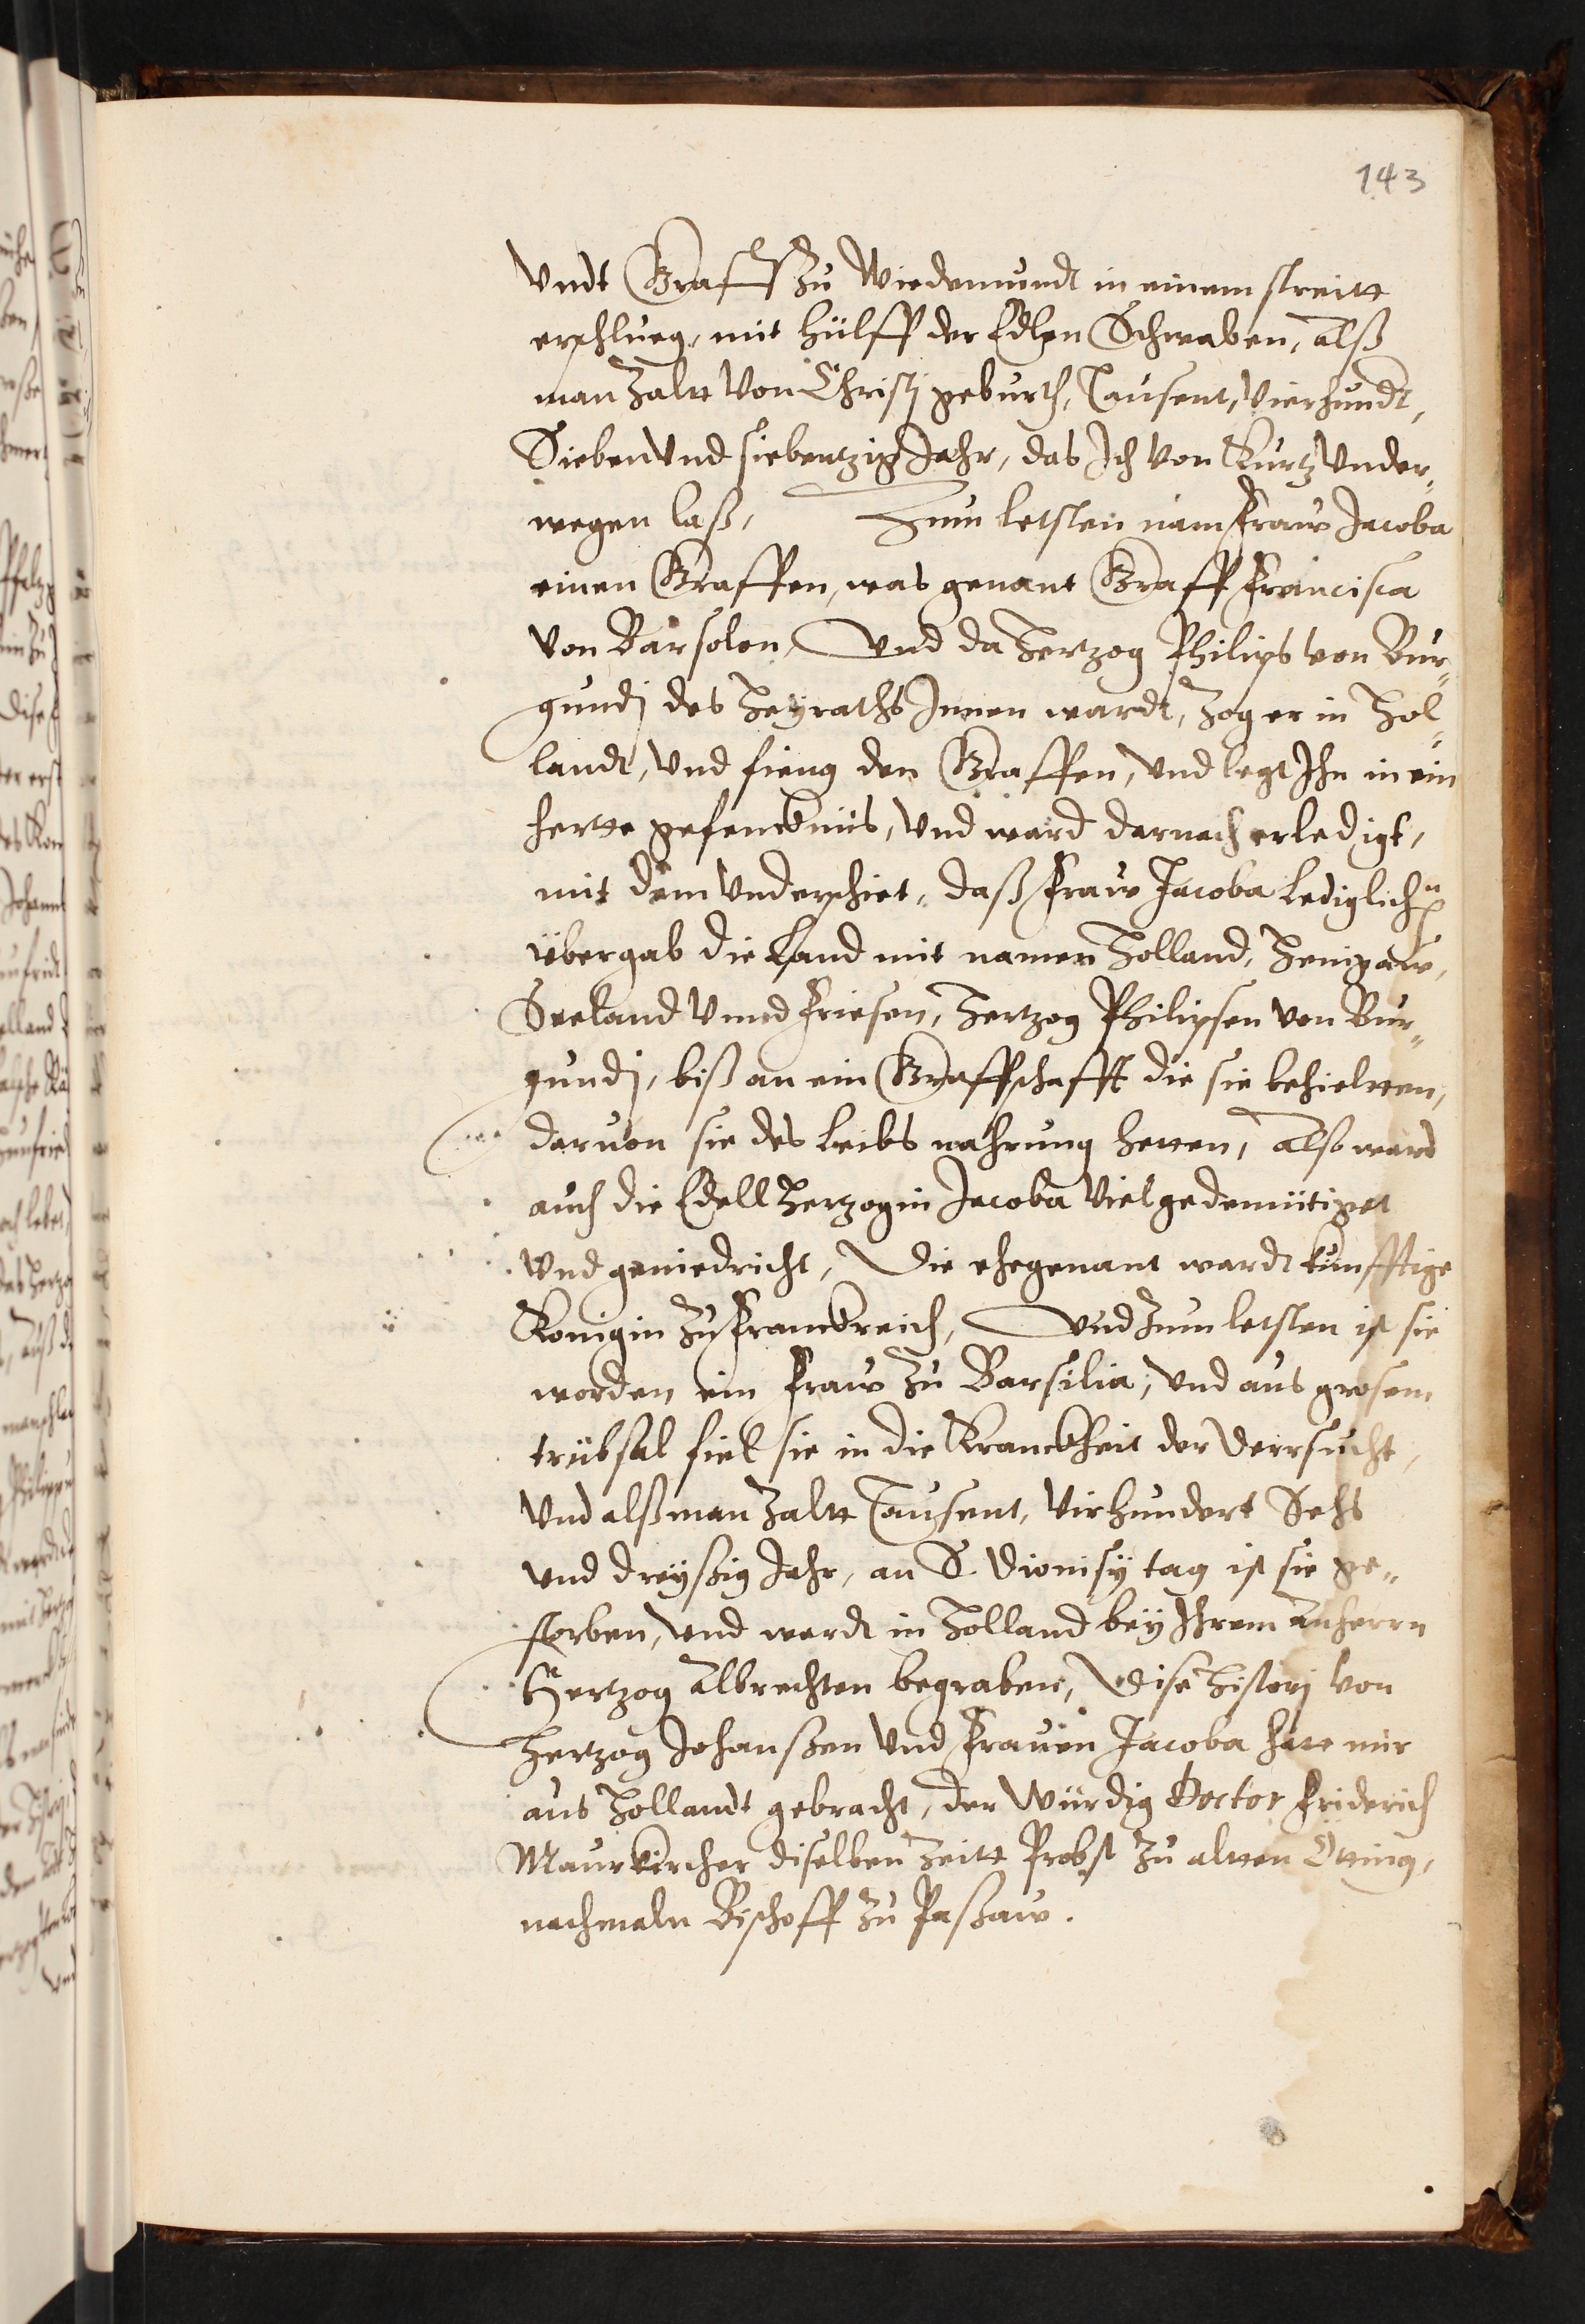 143
Vndt Graff zu Wiedemundt in einem streitt
erschlueg, mit hülff der Edlen Schwaben, alß
man zaltt Von Christj geburth, Tausent, Vierhundt,
Sieben Vnd siebentzig Jahr, das Ich von Kurtz Vnder„
wegen laß, Zum letsten nam fraw Jacoba
einen Graffen, was genant Graff Francisca
Von Barsolen, Vnd da Hertzog Philips von Bur„
gundj des Heyraths Innen wardt, zog er in Hol„
landt, Vnd fieng den Graffen, Vnd legt Ihn in ein
hertte gefencknüs, Vnd ward darnach erledigt,
mit dem Vnderschiet, daß fraw Jacoba Lediglich
übergab die Land mit namen Holland, Henigaw,
Seeland Vnnd Friesen, Hertzog Philipsen von Bur„
gundj, biß an ein Graffschafft die sie behieltten,
daruon sie des Leibs nahrung hetten, Also ward
auch die Edell Hertzogin Jacoba Viel gedemütiget
Vnd geniedricht, Die ehegenant wardt künfftige
Konigin zu Franckreich, Vnd zum letsten ist sie
worden ein Fraw zu Barsilia, Vnd aus grosem
trübsal fiel sie in die Kranckheit der Derrsucht,
Vnd alß man zaltt Tausent, Virhundert Sechs
Vnd dreyßig Jahr, an S. Dionisÿ tag ist sie ge„
storben, Vnd wardt in Holland bey Ihrem Anherrn
Hertzog Albrechten begraben, Dise Historj Von
Hertzog Johanßen Vnd Frauen Jacoba hatt mir
aus Hollandt gebracht, der Würdig Doctor Friderich
Maurkircher diselben Zeitt Probst zu altten Ötting,
nachmaln Bischoff zu Paßaw.